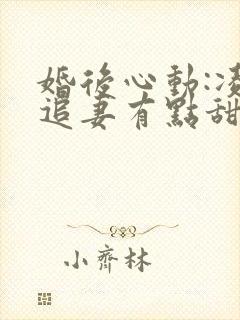 婚後心動:
追妻有點甜
小齊林